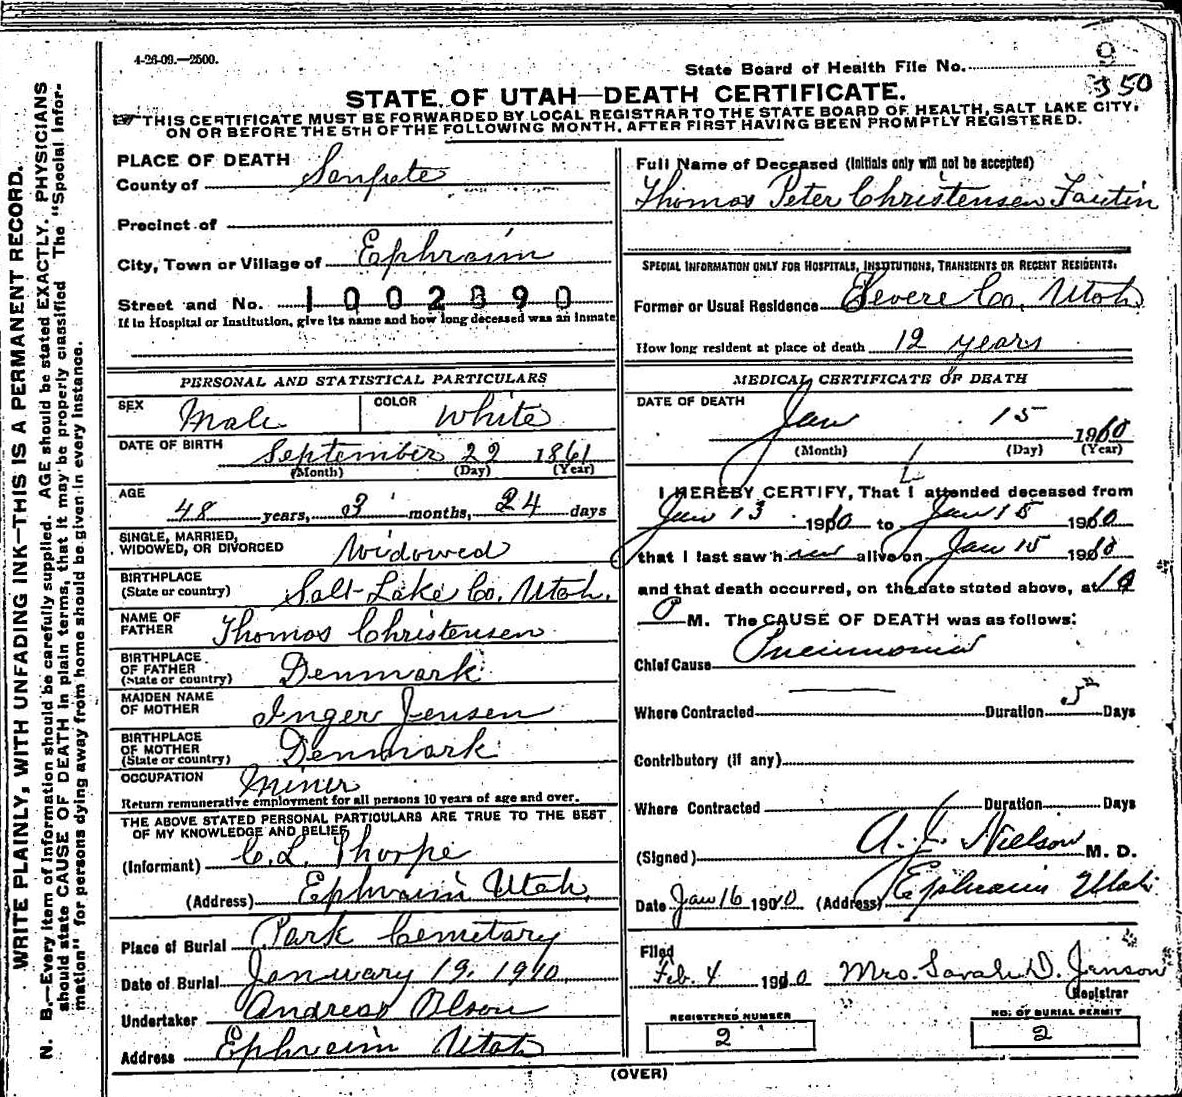 4-26-09.—2500.
9
State Board of Health File No.
350
STATE OF UTAH—DEATH CERTIFICATE.
THIS CERTIFICATE MUST BE FORWARDED BY LOCAL REGISTRAR TO THE STATE BOARD OF HEALTH, SALT LAKE CITY,
ON OR BEFORE THE 5TH OF THE FOLLOWING MONTH, AFTER FIRST HAVING BEEN PROMPTLY REGISTERED.
WRITE PLAINLY, WITH UNFADING INK—THIS IS A PERMANENT RECORD.
N. B.—Every item of information should be carefully supplied. AGE should be stated EXACTLY. PHYSICIANS
should state CAUSE OF DEATH in plain terms, that it may be properly classified The "Special Infor-
mation" for persons dying away from home should be given in every instance.
PLACE OF DEATH
County of Sanpete
Precinct of
City, Town or Village of Ephraim
Street and No. 1002890
If in Hospital or Institution, give its name and how long deceased was an inmate
PERSONAL AND STATISTICAL PARTICULARS
SEX Male COLOR White
DATE OF BIRTH September 22 1861
(Month) (Day) (Year)
AGE 48 years, 3 months, 24 days
SINGLE, MARRIED,
WIDOWED, OR DIVORCED Widowed
BIRTHPLACE
(State or country) Salt-Lake Co. Utah.
NAME OF
FATHER Thomas Christensen
BIRTHPLACE
OF FATHER
(State or country) Denmark
MAIDEN NAME
OF MOTHER Inger Jensen
BIRTHPLACE
OF MOTHER
(State or country) Denmark
OCCUPATION Miner
Return remunerative employment for all persons 10 years of age and over.
THE ABOVE STATED PERSONAL PARTICULARS ARE TRUE TO THE BEST
OF MY KNOWLEDGE AND BELIEF
(Informant) C. L. Thorpe
(Address) Ephraim Utah,
Place of Burial Park Cemetary
Date of Burial January 19, 1910
Undertaker Andreas Olson
Address Ephraim Utah
Full Name of Deceased (Initials only will not be accepted)
Thomas Peter Christensen Fautin
SPECIAL INFORMATION ONLY FOR HOSPITALS, INSTITUTIONS, TRANSIENTS OR RECENT RESIDENTS.
Former or Usual Residence Severe Co, Utah
How long resident at place of death 12 years
MEDICAL CERTIFICATE OF DEATH
DATE OF DEATH
Jan 15 1910
(Month) (Day) (Year)
I HEREBY CERTIFY, That I attended deceased from
Jan 13 1910 to Jan 15 1910
that I last saw h im alive on Jan 15 1910
and that death occurred, on the date stated above, at 10
P M. The CAUSE OF DEATH was as follows:
Chief Cause Pneumonia
Where Contracted Duration 5 Days
Contributory (if any)
Where Contracted Duration Days
(Signed) A. J. Nielson M. D.
Date Jan 16 1910 (Address) Ephraim Utah
Filed
Feb. 4 1910 Mrs. Sarah D. Jenson
Registrar
REGISTERED NUMBER
2
NO. OF BURIAL PERMIT
2
(OVER)